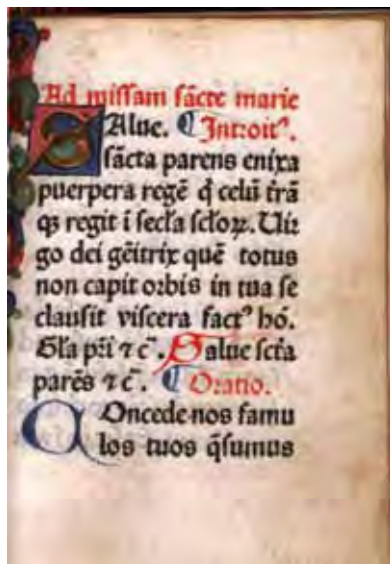 Ad missam sācte marie
SAlue. ¶ Introitꝰ.
sācta parens enixa
puerpera regē q̄ celū t̄rā
qꝫ regit ī secl̄a scl̄oꝝ. Uir
go dei gēitrix quē totus
non capit orbis in tua se
clausit viscera factꝰ hō.
Gl̄a pr̄i ⁊ c̄. Salue sct̄a
parēs ⁊ c̄. ¶ Oratio.
COncede nos famu
los tuos q̄sumus